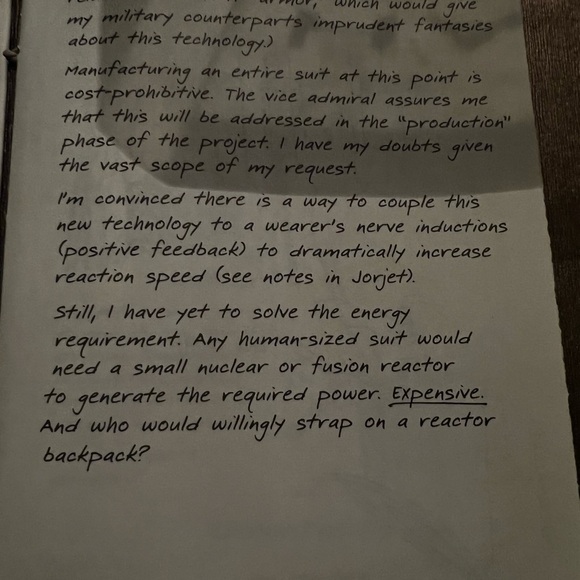 armor, which would give
my military counterparts imprudent fantasies
about this technology.)
Manufacturing an entire suit at this point is
cost-prohibitive. The vice admiral assures me
that this will be addressed in the "production"
phase of the project. I have my doubts given
the vast scope of my request.
I'm convinced there is a way to couple this
new technology to a wearer's nerve inductions
(positive feedback) to dramatically increase
reaction speed (see notes in Jorjet).
Still, I have yet to solve the energy
requirement. Any human-sized suit would
need a small nuclear or fusion reactor
to generate the required power. Expensive.
And who would willingly strap on a reactor
backpack?